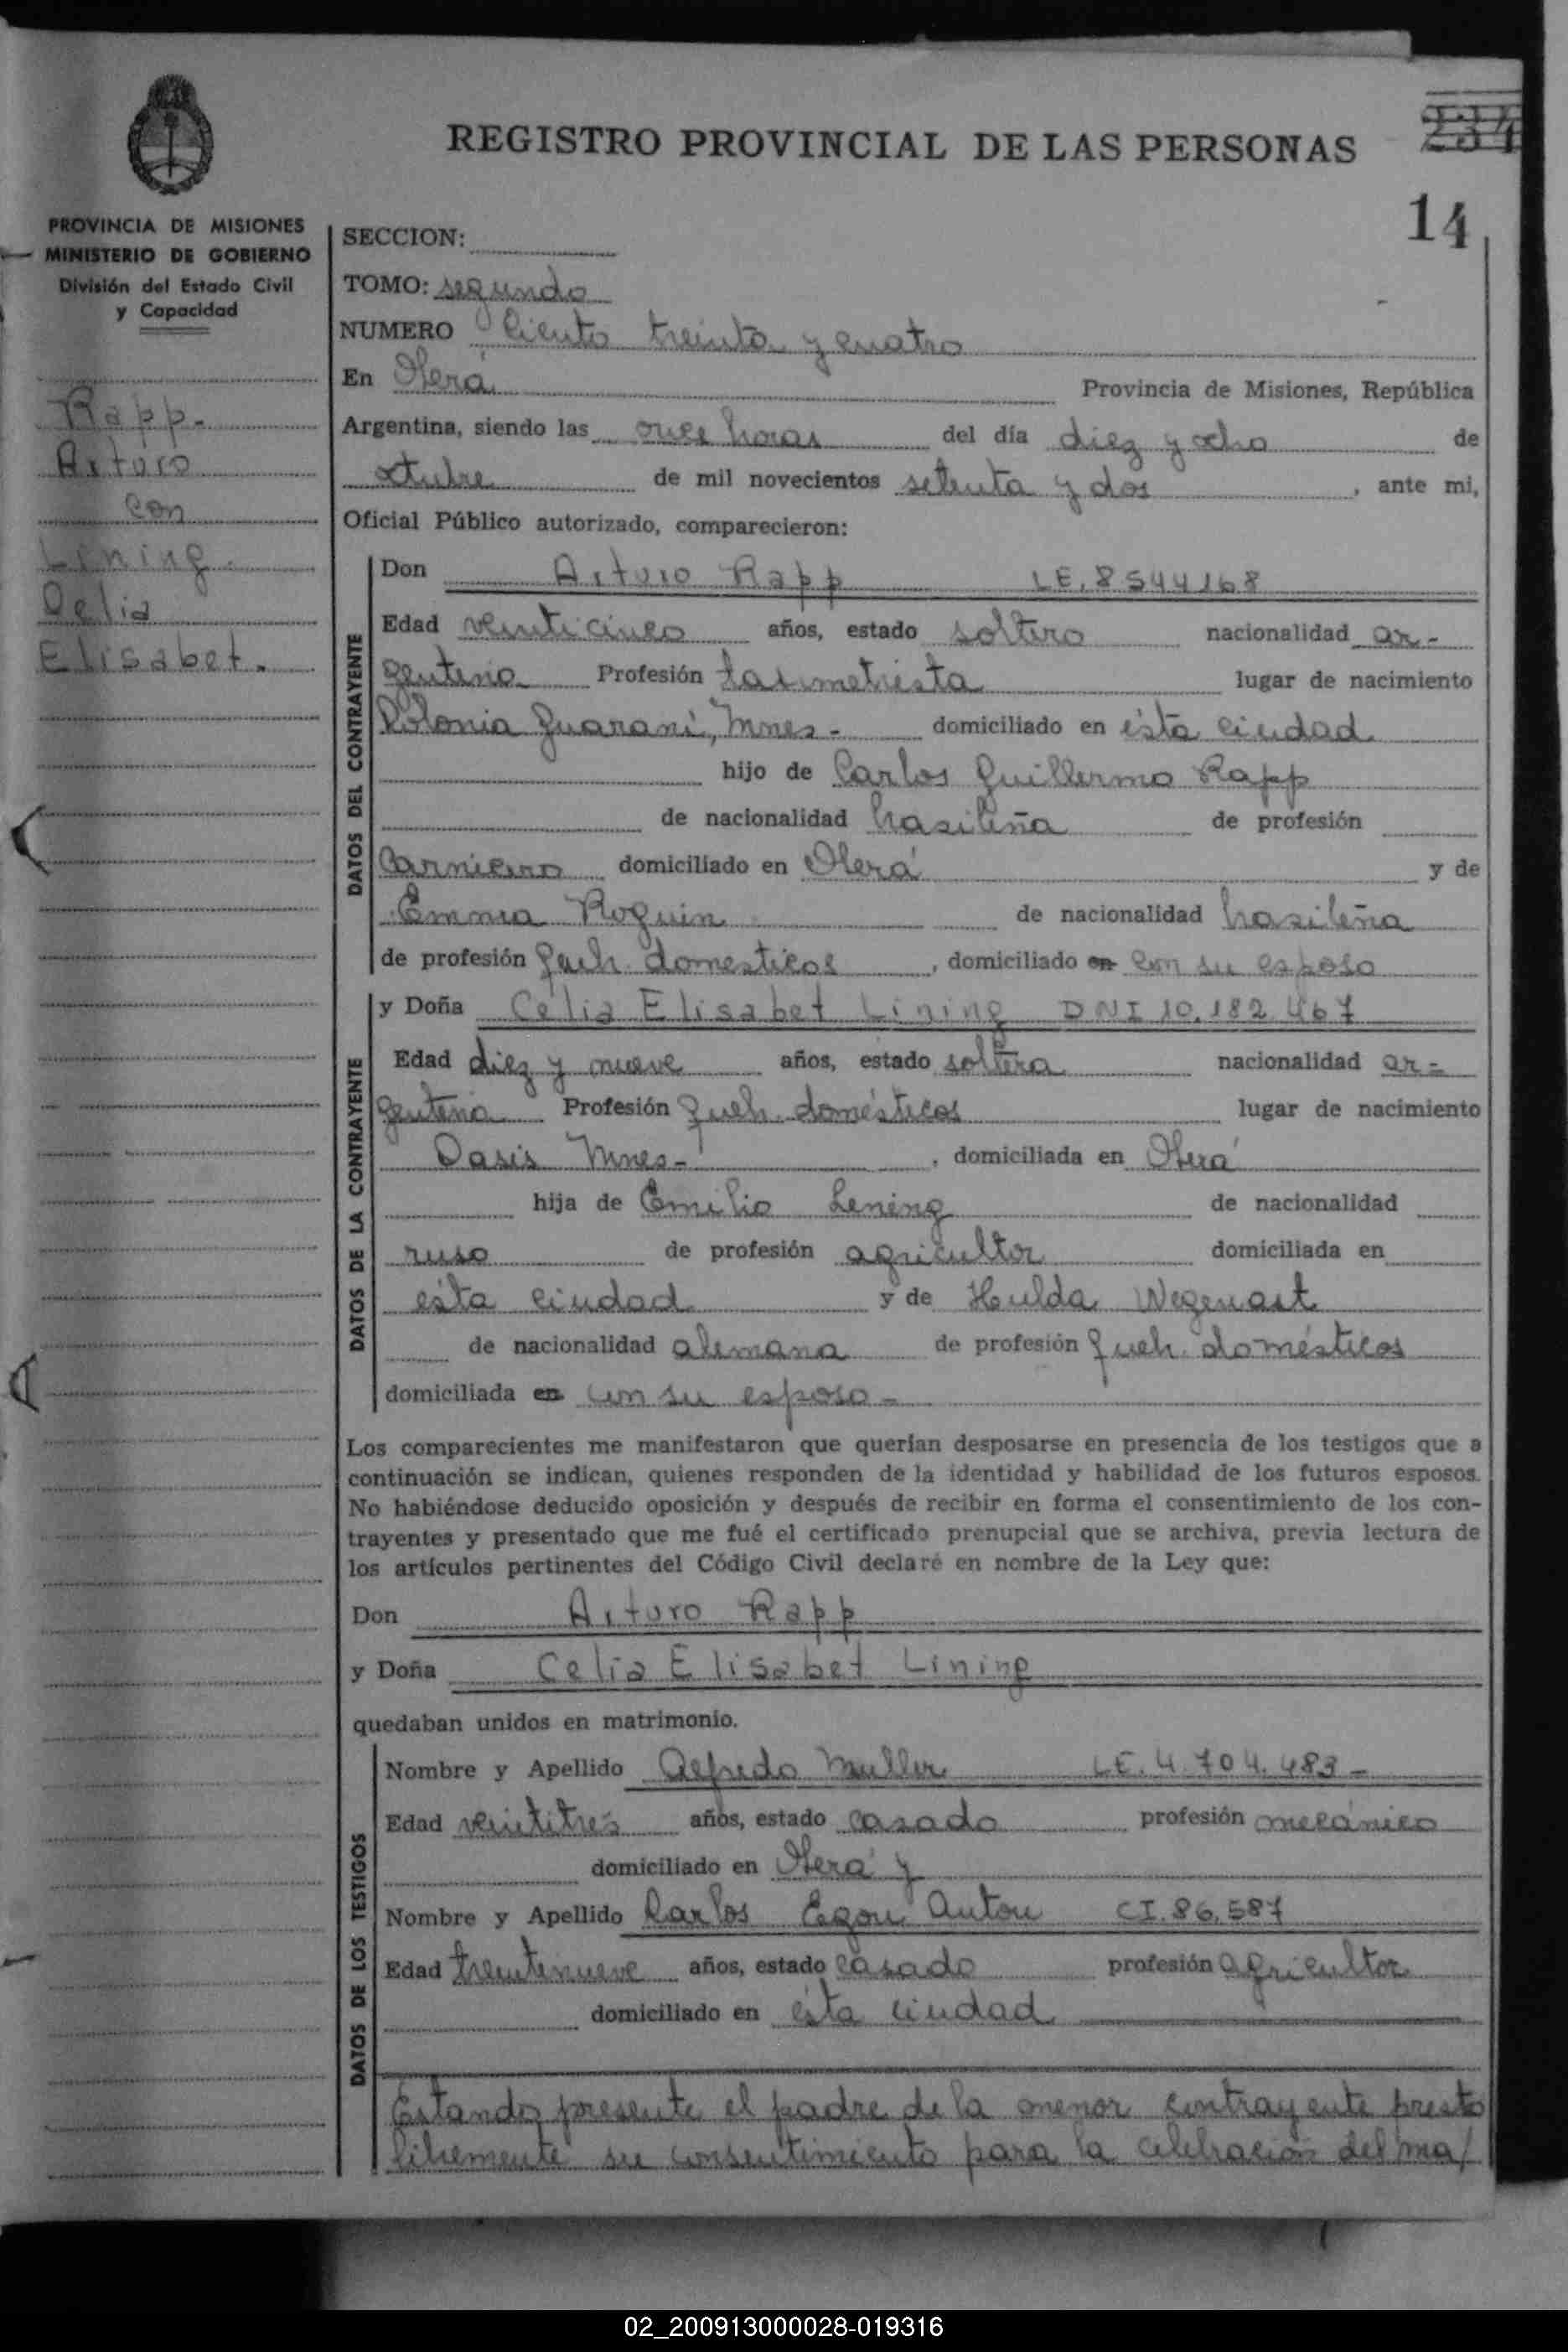 REGISTRO PROVINCIAL DE LAS PERSONAS
234
14
PROVINCIA DE MISIONES
MINISTERIO DE GOBIERNO
División del Estado Civil
y Capacidad
Rapp.
Arturo
con
Lening.
Celia
Elisabet.
SECCION:
TOMO: segundo
NUMERO Ciento treinta y cuatro
En Oberá Provincia de Misiones, República
Argentina, siendo las once horas del día diez y ocho de
octubre de mil novecientos setenta y dos, ante mi,
Oficial Público autorizado, comparecieron:
DATOS DEL CONTRAYENTE
Don Arturo Rapp LE. 8544168
Edad veinticinco años, estado soltero nacionalidad ar-
gentino Profesión taximetrista lugar de nacimiento
Colonia Guaraní, Mnes- domiciliado en ésta ciudad
hijo de Carlos Guillermo Rapp
de nacionalidad brasileña de profesión
Carnicero domiciliado en Oberá y de
Emma Roguin de nacionalidad brasileña
de profesión queh. domesticos, domiciliado en con su esposo
DATOS DE LA CONTRAYENTE
y Doña Celia Elisabet Lining DNI 10.182.467
Edad diez y nueve años, estado soltera nacionalidad ar-
gentina Profesión queh. domésticos lugar de nacimiento
Oasis Mnes-, domiciliada en Oberá
hija de Emilio Lening de nacionalidad
ruso de profesión agricultor domiciliada en
ésta ciudad y de Hulda Wegenast
de nacionalidad alemana de profesión queh. domésticos
domiciliada en con su esposo-
Los comparecientes me manifestaron que querían desposarse en presencia de los testigos que a
continuación se indican, quienes responden de la identidad y habilidad de los futuros esposos.
No habiéndose deducido oposición y después de recibir en forma el consentimiento de los con-
trayentes y presentado que me fué el certificado prenupcial que se archiva, previa lectura de
los artículos pertinentes del Código Civil declaré en nombre de la Ley que:
Don Arturo Rapp
y Doña Celia Elisabet Lining
quedaban unidos en matrimonio.
DATOS DE LOS TESTIGOS
Nombre y Apellido Alfredo Muller LE. 4.704.483-
Edad veintitrés años, estado casado profesión mecánico
domiciliado en Oberá y
Nombre y Apellido Carlos Egon Anton CI. 86.587
Edad treintinueve años, estado casado profesión agricultor
domiciliado en ésta ciudad
Estando presente el padre de la menor contrayente presto
libremente su consentimiento para la celebración del ma/
02_200913000028-019316